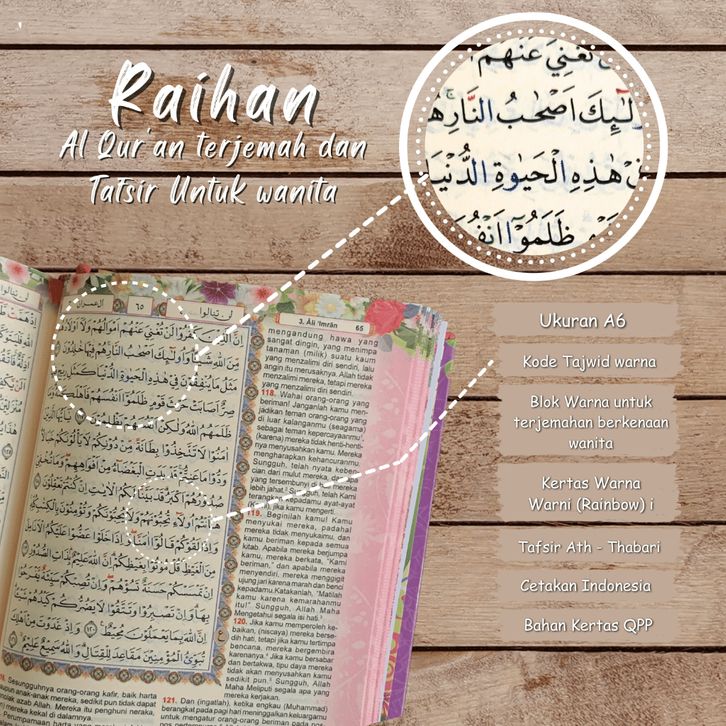 Raihan
Al Qur'an terjemah dan
Tafsir Untuk wanita
تُغْنِيَ عَنْهُمْ
اَصْحٰبُ النَّارِ
هٰذِهِ الْحَيٰوةِ الدُّنْيَا
ظَلَمُوْٓا
Ukuran A6
Kode Tajwid warna
Blok Warna untuk
terjemahan berkenaan
wanita
Kertas Warna
Warni (Rainbow) i
Tafsir Ath - Thabari
Cetakan Indonesia
Bahan Kertas QPP
٦٥
لن تنالوا
اِنَّ الَّذِيْنَ كَفَرُوْا لَنْ تُغْنِيَ عَنْهُمْ اَمْوَالُهُمْ وَلَآ اَوْلَادُهُمْ
مِّنَ اللّٰهِ شَيْـًٔا وَاُولٰۤىِٕكَ اَصْحٰبُ النَّارِ هُمْ فِيْهَا خٰلِدُوْنَ
مَثَلُ مَا يُنْفِقُوْنَ فِيْ هٰذِهِ الْحَيٰوةِ الدُّنْيَا كَمَثَلِ رِيْحٍ
صِرٌّ اَصَابَتْ حَرْثَ قَوْمٍ ظَلَمُوْٓا اَنْفُسَهُمْ فَاَهْلَكَتْهُ
ظَلَمَهُمُ اللّٰهُ وَلٰكِنْ اَنْفُسَهُمْ يَظْلِمُوْنَ
اٰمَنُوْا لَا تَتَّخِذُوْا بِطَانَةً مِّنْ دُوْنِكُمْ لَا يَأْلُوْنَكُمْ
وَدُّوْا مَا عَنِتُّمْ قَدْ بَدَتِ الْبَغْضَاۤءُ مِنْ اَفْوَاهِهِمْ وَمَا تُخْفِيْ
صُدُوْرُهُمْ اَكْبَرُ قَدْ بَيَّنَّا لَكُمُ الْاٰيٰتِ اِنْ كُنْتُمْ تَعْقِلُوْنَ
هٰٓاَنْتُمْ اُولَاۤءِ تُحِبُّوْنَهُمْ وَلَا يُحِبُّوْنَكُمْ وَتُؤْمِنُوْنَ بِالْكِتٰبِ كُلِّهٖ
وَاِذَا لَقُوْكُمْ قَالُوْٓا اٰمَنَّا وَاِذَا خَلَوْا عَضُّوْا عَلَيْكُمُ الْاَنَامِلَ
مِنَ الْغَيْظِ قُلْ مُوْتُوْا بِغَيْظِكُمْ اِنَّ اللّٰهَ عَلِيْمٌ بِذَاتِ الصُّدُوْرِ
اِنْ تَمْسَسْكُمْ حَسَنَةٌ تَسُؤْهُمْ وَاِنْ تُصِبْكُمْ سَيِّئَةٌ يَّفْرَحُوْا
بِهَا وَاِنْ تَصْبِرُوْا وَتَتَّقُوْا لَا يَضُرُّكُمْ كَيْدُهُمْ شَيْـًٔا
اِنَّ اللّٰهَ بِمَا يَعْمَلُوْنَ مُحِيْطٌ ١٢٠ وَاِذْ غَدَوْتَ مِنْ اَهْلِكَ
تُبَوِّئُ الْمُؤْمِنِيْنَ مَقَاعِدَ لِلْقِتَالِ وَاللّٰهُ سَمِيْعٌ عَلِيْمٌ
3. Āli 'Imrān 65
mengandung hawa yang
sangat dingin, yang menimpa
tanaman (milik) suatu kaum
yang menzalimi diri sendiri, lalu
angin itu merusaknya. Allah tidak
menzalimi mereka, tetapi mereka
yang menzalimi diri sendiri.
118. Wahai orang-orang yang
beriman! Janganlah kamu men-
jadikan teman orang-orang yang
di luar kalanganmu (seagama)
sebagai teman kepercayaanmu,
(karena) mereka tidak henti-henti-
nya menyusahkan kamu. Mereka
mengharapkan kehancuranmu.
Sungguh, telah nyata keben-
cian dari mulut mereka, dan apa
yang tersembunyi di hati mereka
lebih jahat. Sungguh, telah Kami
terangkan kepadamu ayat-ayat
jika kamu mengerti.
119. Beginilah kamu! Kamu
menyukai mereka, padahal
mereka tidak menyukaimu, dan
kamu beriman kepada semua
kitab. Apabila mereka berjumpa
kamu, mereka berkata, "Kami
beriman," dan apabila mereka
menyendiri, mereka menggigit
ujung jari karena marah dan benci
kepadamu. Katakanlah, "Matilah
kamu karena kemarahanmu
itu!" Sungguh, Allah Maha
Mengetahui segala isi hati.
120. Jika kamu memperoleh ke-
baikan, (niscaya) mereka berse-
dih hati, tetapi jika kamu tertimpa
bencana, mereka bergembira
karenanya. Jika kamu bersabar
dan bertakwa, tipu daya mereka
tidak akan menyusahkan kamu
sedikit pun. Sungguh, Allah
Maha Meliputi segala apa yang
mereka kerjakan.
121. Dan (ingatlah), ketika engkau (Muhammad)
berangkat pada pagi hari meninggalkan keluargamu
untuk mengatur orang-orang beriman pada pos-
Sesungguhnya orang-orang kafir, baik harta
maupun anak-anak mereka, sedikit pun tidak dapat
menolak azab Allah. Mereka itu penghuni neraka,
mereka kekal di dalamnya.
Perumpamaan harta yang mereka